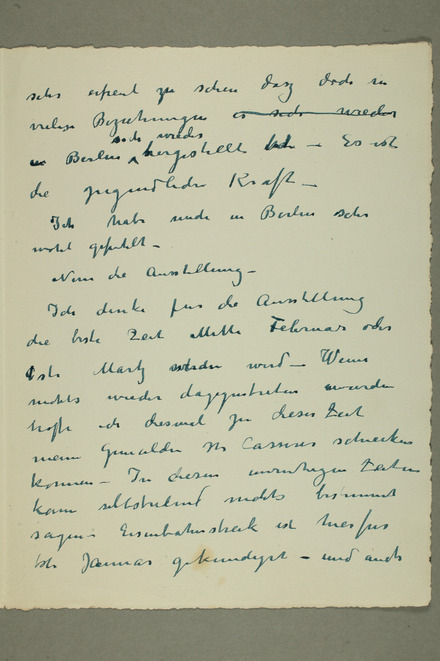 sehr erfreut zu sehen dasz doch in
vielen Beziehungen es sich wieder
sich wieder
in Berlin hergestellt hat – Es ist
die jugendliche Kraft –
Ich habe mich in Berlin sehr
wohl gefühlt –
Nun die Ausstellung –
Ich denke für die Ausstellung
die beste Zeit Mitte Februar oder
1ste Martz wird – Wenn
nichts wieder dazwischen
hoffe ich diesmal zu dieser Zeit
meine Gemälden schicken
können – In diesen unruhigen Zeiten
kann selbstredend nichts bestimmt
sagen Eisenbahnstreik ist hier für
1st Januar gekündigt – und auch